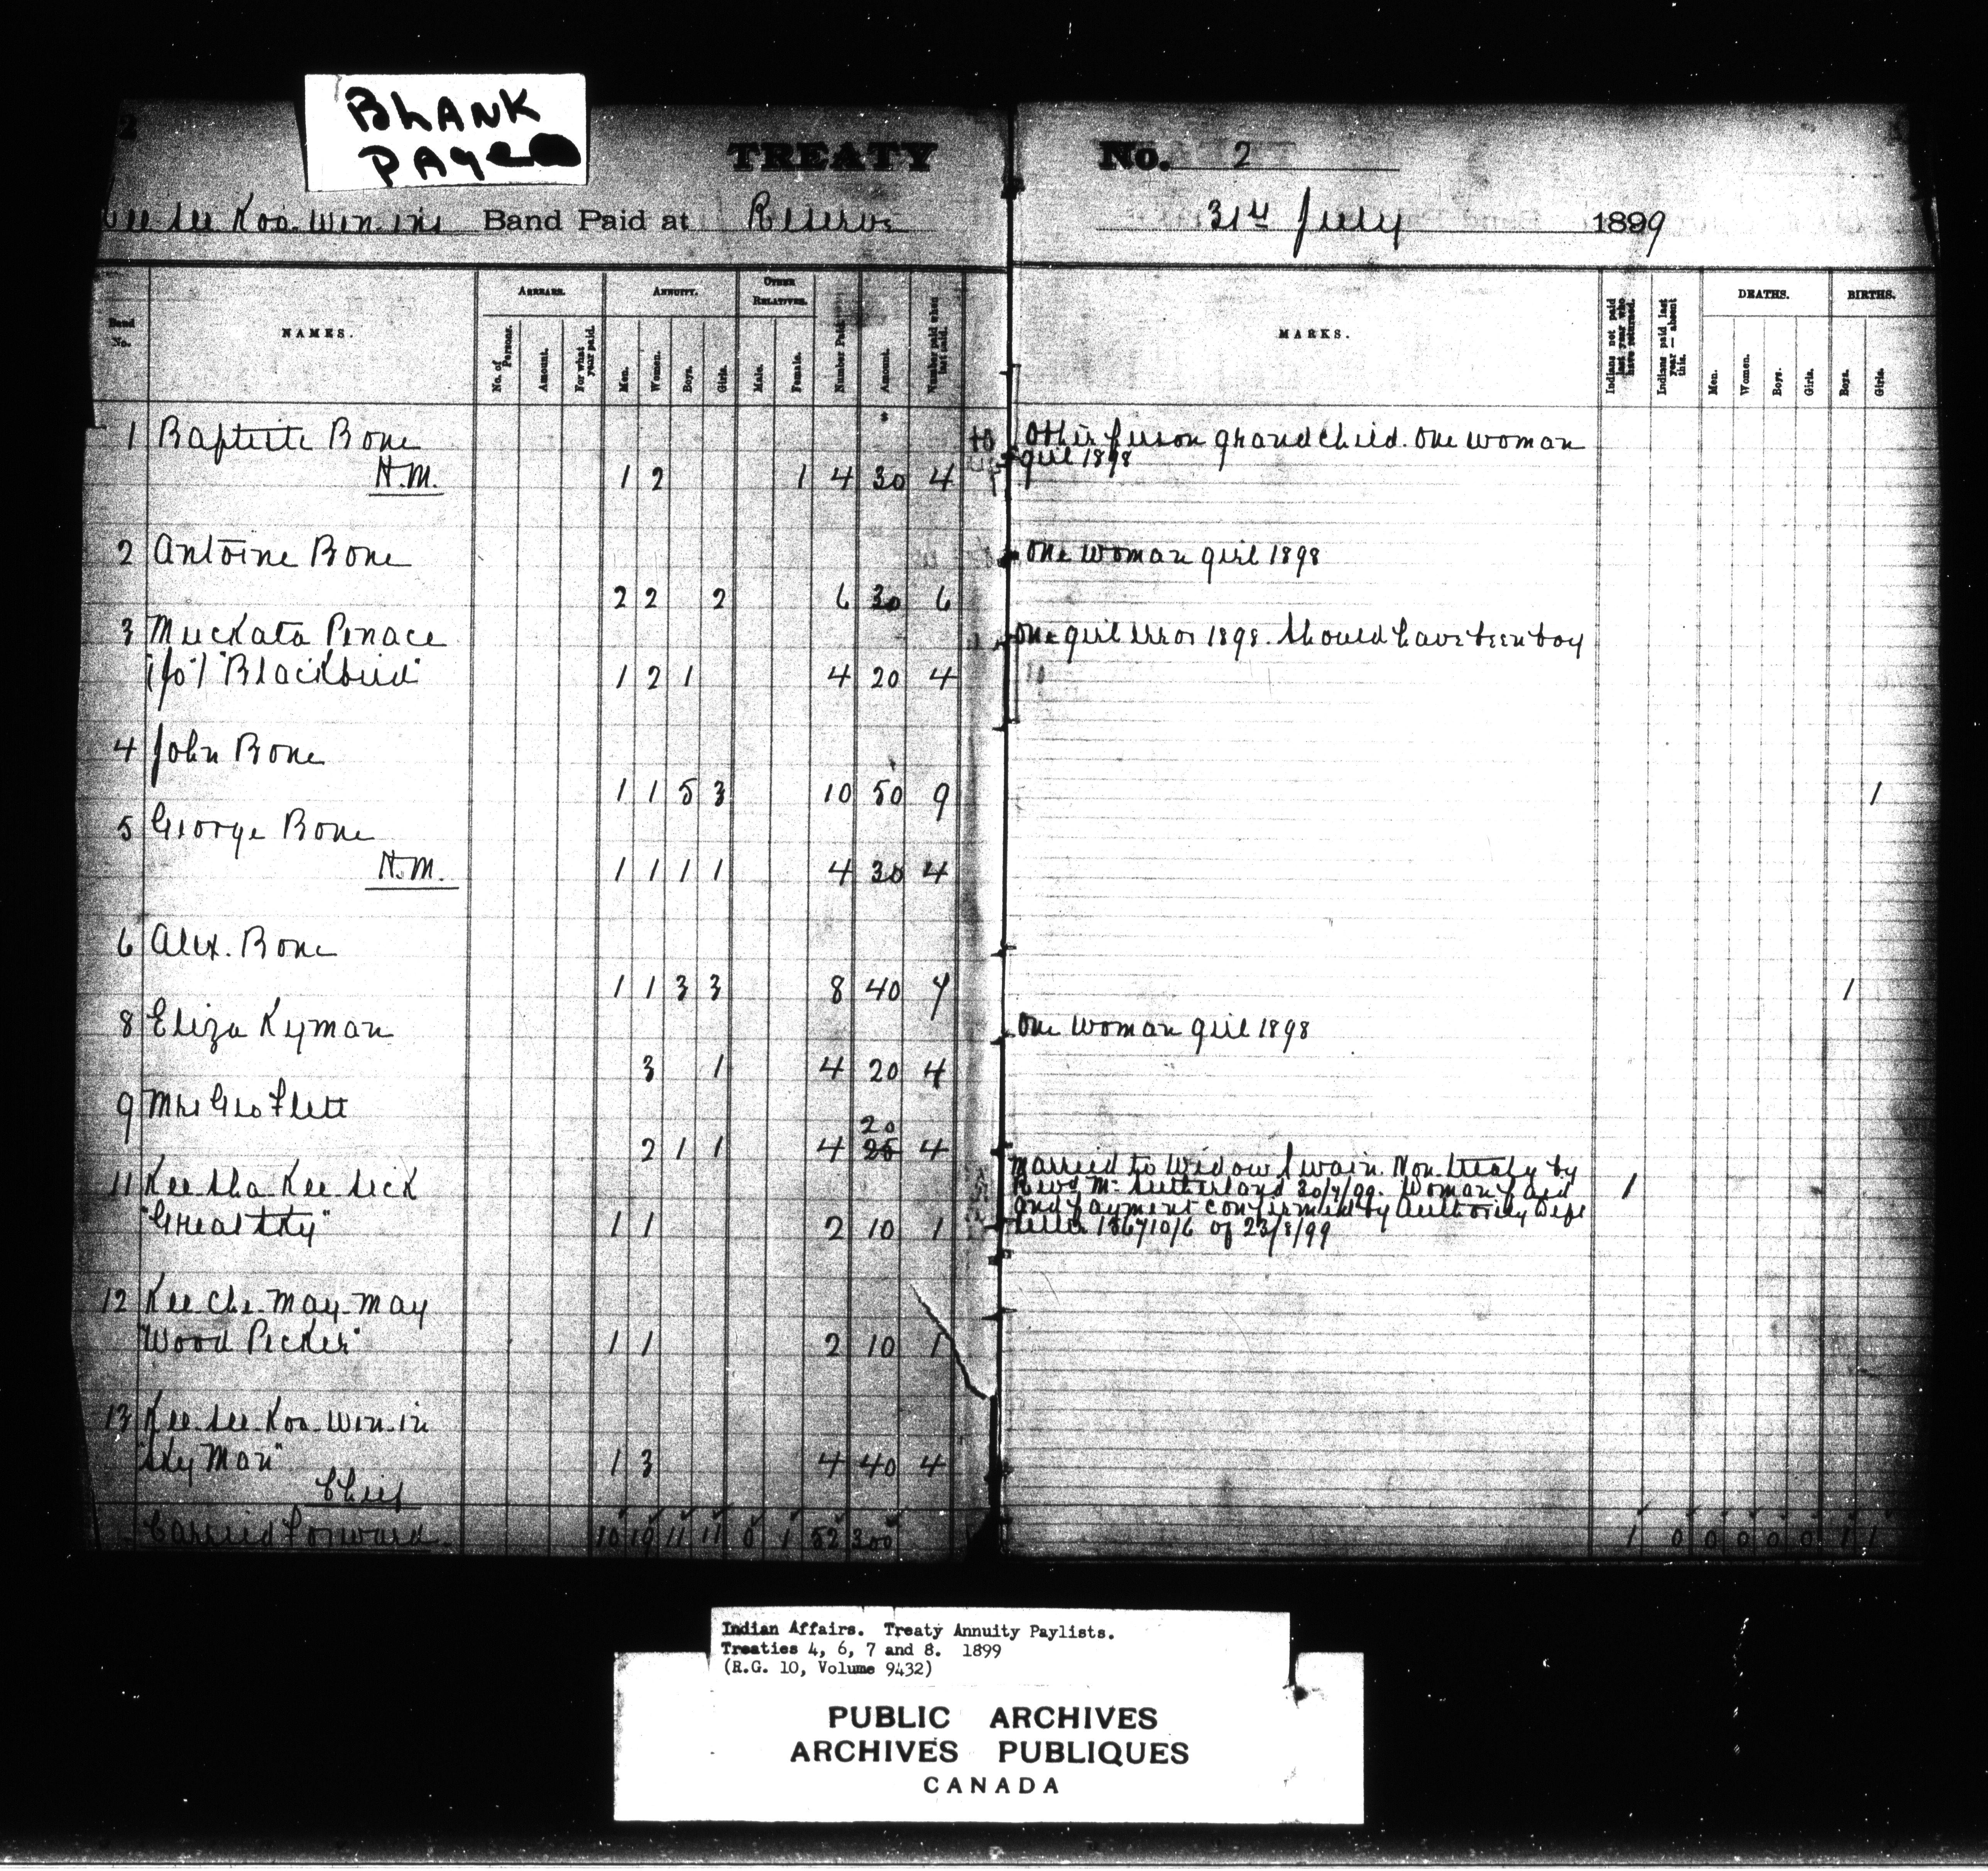 BLANK
PAGE
2
TREATY No. 2
Kee-see-Koo-win-in's Band Paid at Reserve 31st July 1899
Band No.
NAMES.
ARREARS.
No. of Persons.
Amount.
For what year paid.
ANNUITY.
Men.
Women.
Boys.
Girls.
OTHER RELATIVES.
Male.
Female.
Number Paid.
Amount.
Number paid when last paid.
MARKS.
Indians not paid last year who have returned.
Indians paid last year — absent this.
DEATHS.
Men.
Women.
Boys.
Girls.
BIRTHS.
Boys.
Girls.
$
1 Baptiste Bone Other person grandchild. One woman
H.M. 1 2 1 4 30 4 girl 1898
2 Antoine Bone One woman girl 1898
2 2 2 6 30 6
3 Muckata Penace One girl error 1898. Should have been boy
(Jos) "Blackbird" 1 2 1 4 20 4
4 John Bone
1 1 5 3 10 50 9 1
5 George Bone
H.M. 1 1 1 1 4 30 4
6 Alex. Bone
1 1 3 3 8 40 7 1
8 Eliza Kyman One woman girl 1898
3 1 4 20 4
9 Mrs Geo Flett
20
2 1 1 4 25 4
Married to Widow Swain. Non-treaty by
11 Kee sha Kee sick Revd Mc Sutherland 30/7/99. Woman paid 1
and payment confirmed by Authority Dept
"Great Sky" 1 1 2 10 1 letter 136710/6 of 23/8/99
12 Kee-che-may-may
"Wood Pecker" 1 1 2 10 1
13 Kee-see-Koo-win-in
"Sky Man" 1 3 4 40 4
Chief
Carried Forward 10 19 11 11 0 1 52 300 1 0 0 0 0 0 1 1
Indian Affairs. Treaty Annuity Paylists.
Treaties 4, 6, 7 and 8. 1899
(R.G. 10, Volume 9432)
PUBLIC ARCHIVES
ARCHIVES PUBLIQUES
CANADA